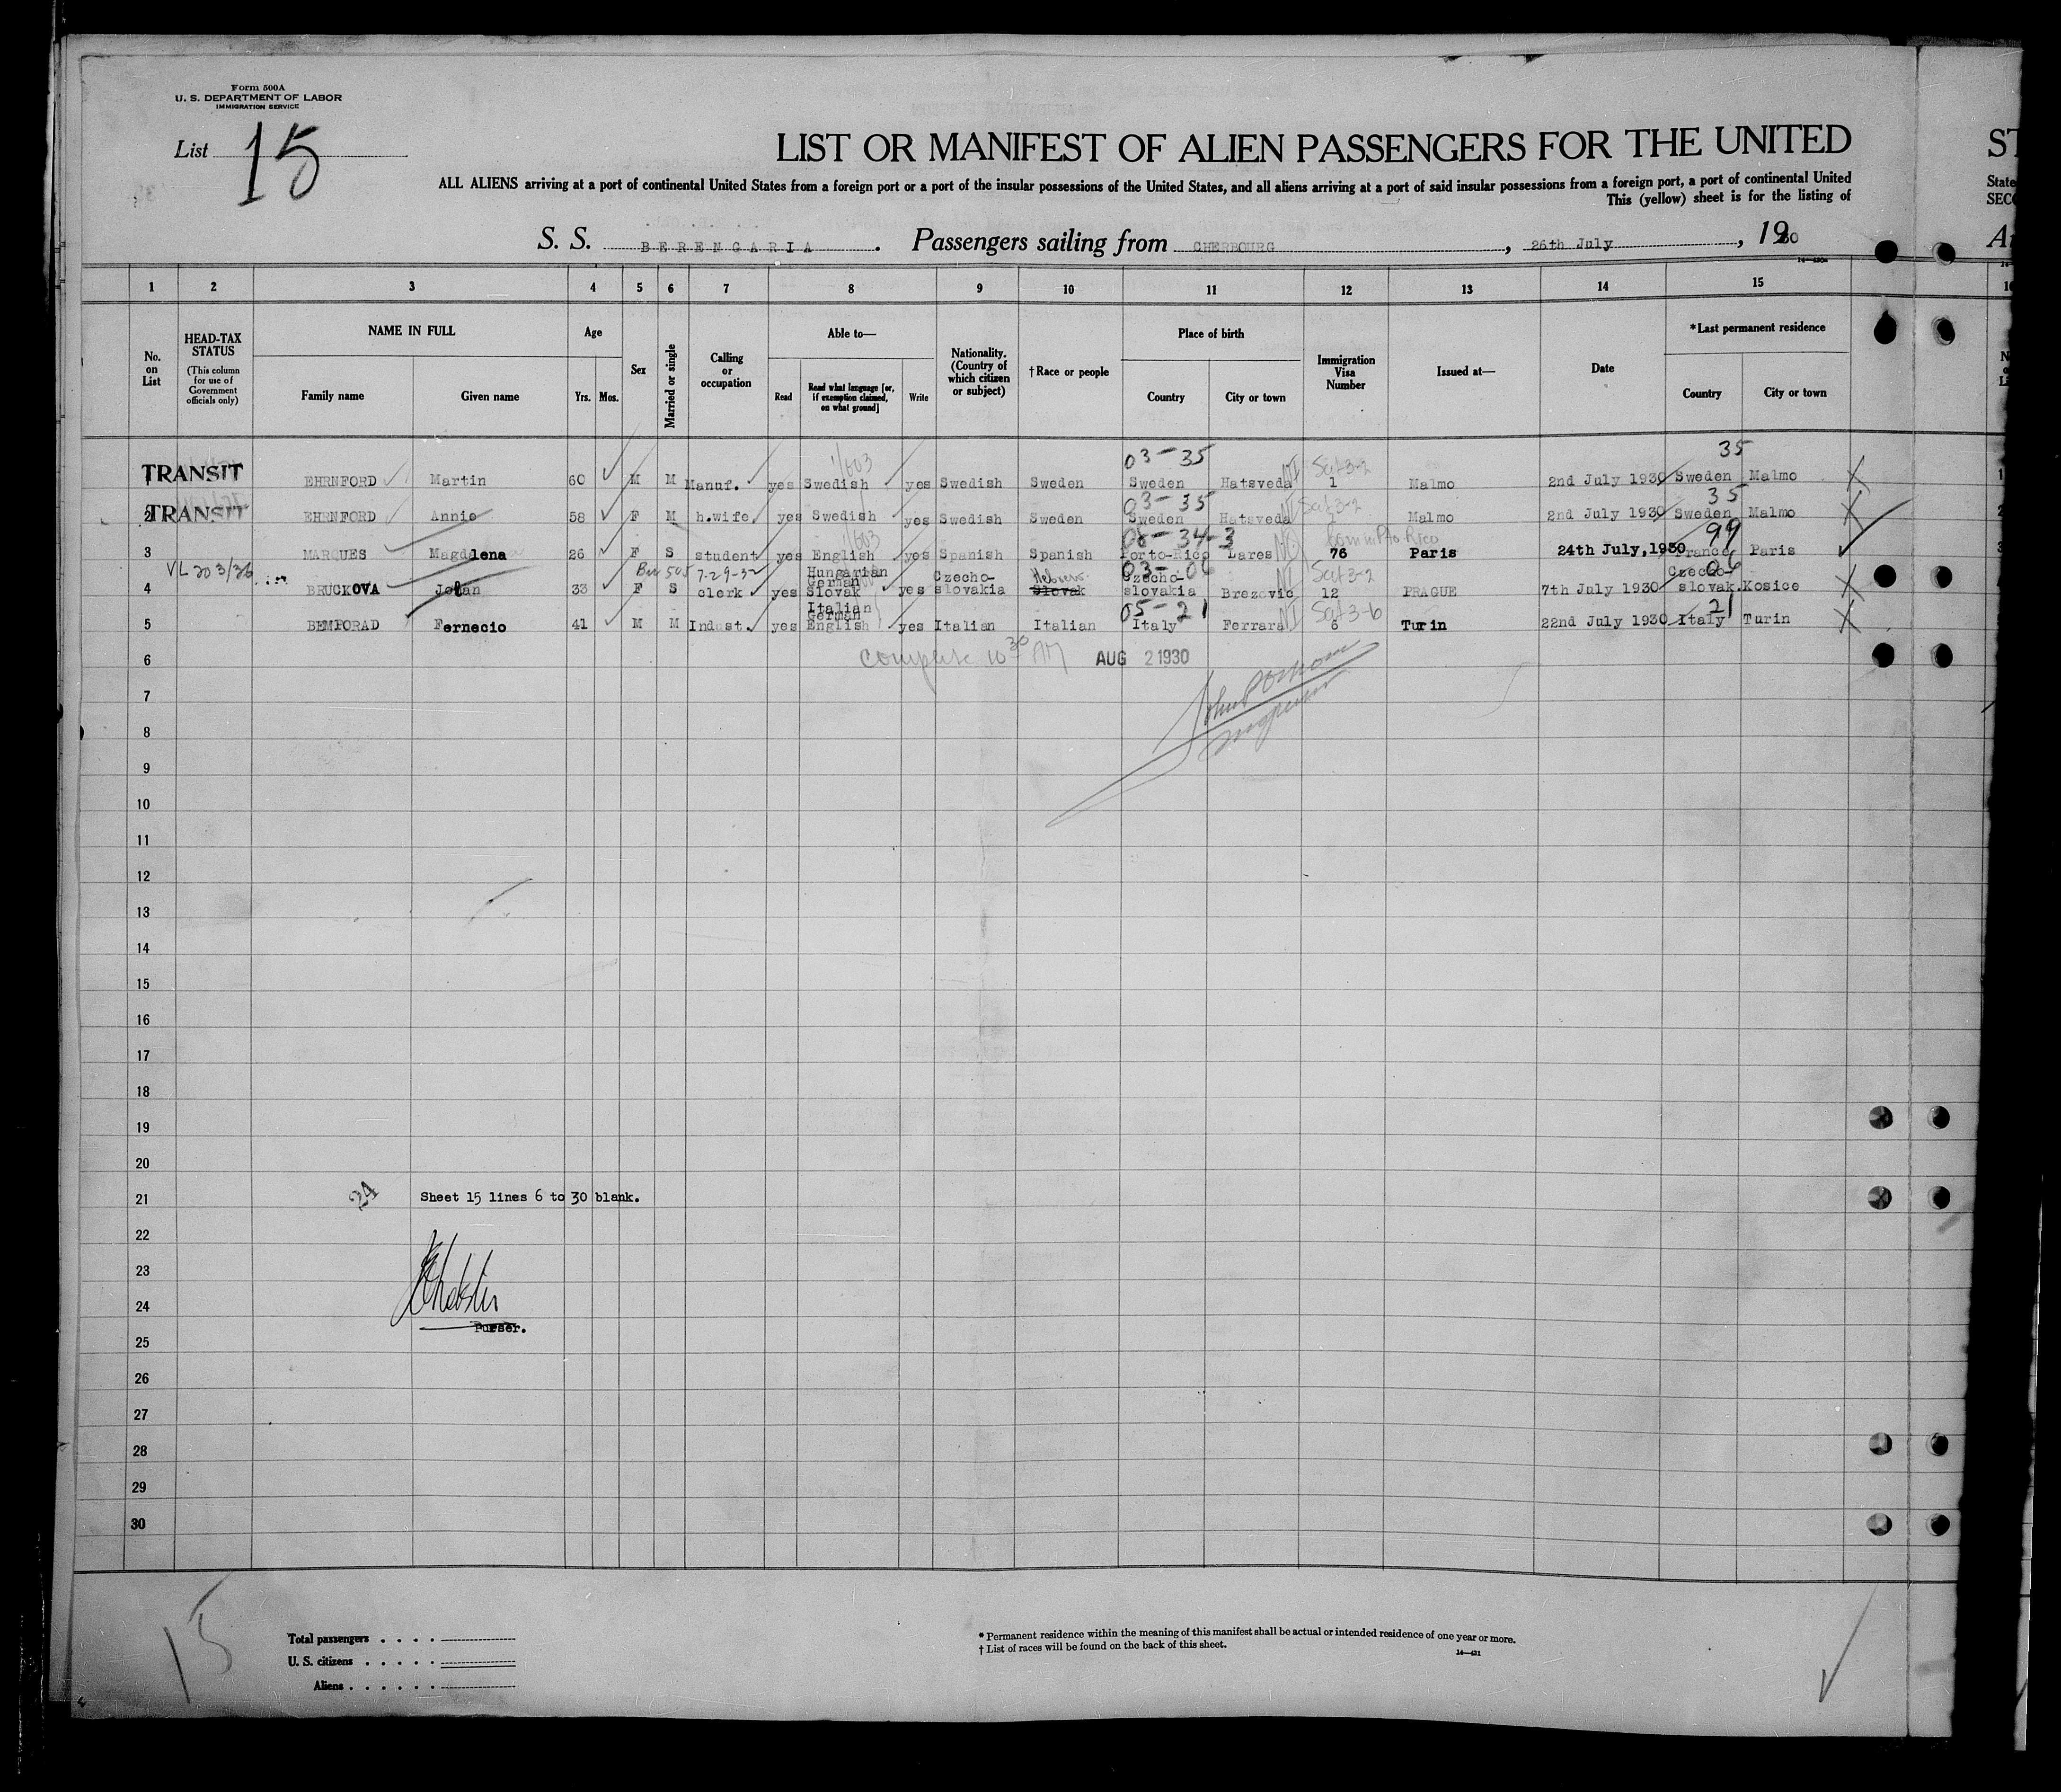 Form 500A
U. S. DEPARTMENT OF LABOR
IMMIGRATION SERVICE
List 15
LIST OR MANIFEST OF ALIEN PASSENGERS FOR THE UNITED
ST
ALL ALIENS arriving at a port of continental United States from a foreign port or a port of the insular possessions of the United States, and all aliens arriving at a port of said insular possessions from a foreign port, a port of continental United
State
This (yellow) sheet is for the listing of
S. S. BERENGARIA. Passengers sailing from CHERBOURG, 26th July, 1930
1 2 3 4 5 6 7 8 9 10 11 12 13 14 15
No. on List
HEAD-TAX STATUS (This column for use of Government officials only)
NAME IN FULL
Family name Given name
Age
Yrs. Mos.
Sex
Married or single
Calling or occupation
Able to—
Read
Read what language [or, if exemption claimed, on what ground]
Write
Nationality. (Country of which citizen or subject)
†Race or people
Place of birth
Country City or town
Immigration Visa Number
Issued at—
Date
*Last permanent residence
Country City or town
03-35 35
1 TRANSIT EHRNFORD Martin 60 M M Manuf. yes Swedish yes Swedish Sweden Sweden Hatsveda 1 Malmo 2nd July 1930 Sweden Malmo
03-35 35
2 TRANSIT EHRNFORD Annie 58 F M h.wife yes Swedish yes Swedish Sweden Sweden Hatsveda 1 Malmo 2nd July 1930 Sweden Malmo
08-34-3 99
3 MARQUES Magdalena 26 F S student yes English yes Spanish Spanish Porto-Rico Lares 76 Paris 24th July,1930 France Paris
VL 303/36 505 7-29-32 03-06 06
4 BRUCKOVA Jolan 33 F S clerk yes Hungarian German Slovak yes Czecho-slovakia Hebrew Slovak Czecho-slovakia Brezovic 12 PRAGUE 7th July 1930 Czecho-slovak. Kosice
05-21 21
5 BEMPORAD Fernecio 41 M M Indust. yes Italian German English yes Italian Italian Italy Ferrara 6 Turin 22nd July 1930 Italy Turin
6 Complete 10 30 AM AUG 2 1930
7
8
9
10
11
12
13
14
15
16
17
18
19
20
21 24 Sheet 15 lines 6 to 30 blank.
22
23
24
Purser.
25
26
27
28
29
30
15
Total passengers
U. S. citizens
Aliens
* Permanent residence within the meaning of this manifest shall be actual or intended residence of one year or more.
† List of races will be found on the back of this sheet.